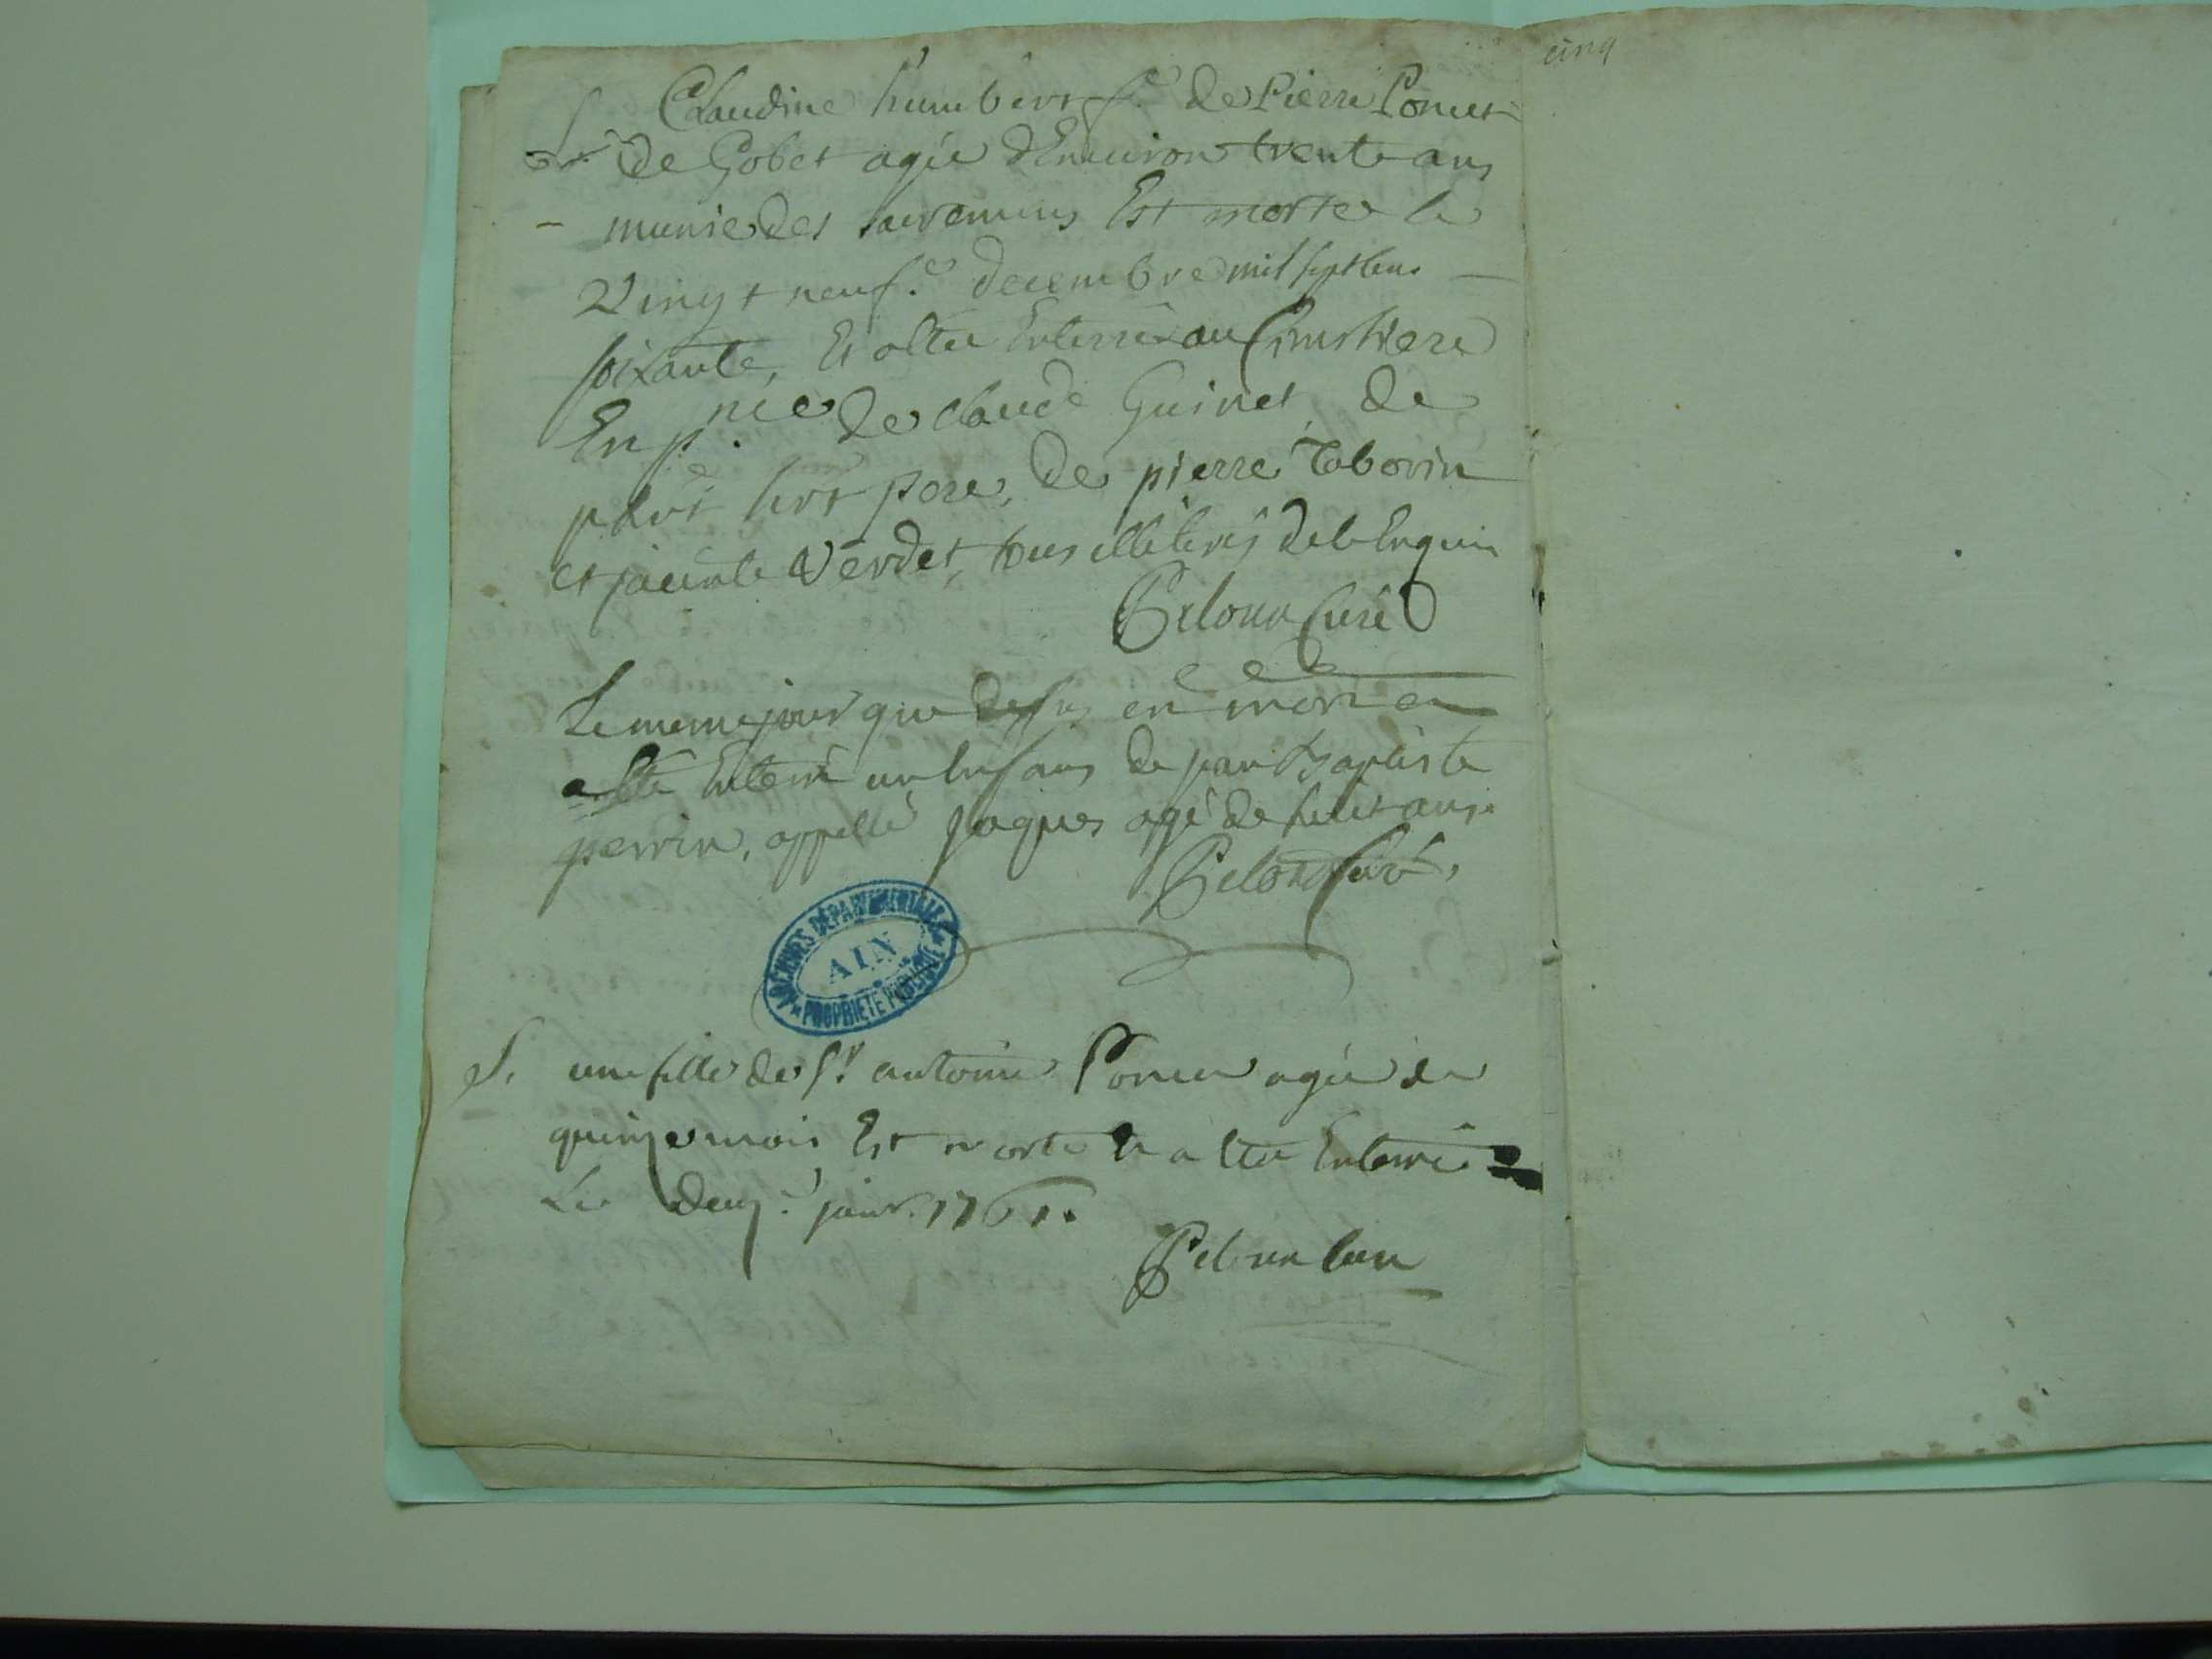 cinq
S. Claudine humbert f.e de Pierre Poncet
de Gobet agée d'Environ trente ans
munie des sacremens Est morte le
Vingt neuf.e decembre mil sept cens
soixante, Et a etee Enterrée au Cimetiere
En p.nce de claude Guinet, de
pere, de pierre Taborin
et jacinte Verdet, tous illiterés de ce Enquis
Curé
Le meme jour que dessus est mort et
a été Enterré un Enfant de jean Baptiste
perrin, appellé jaques agé de huit ans.
Curé
ARCHIVES DÉPARTEMENTALES
AIN
PROPRIÉTÉ PUBLIQUE
S. une fille de S.r antoine Poncet agée de
quinze mois Est morte Et a etee Enterrée
Le deux.e janv. 1761.
Curé